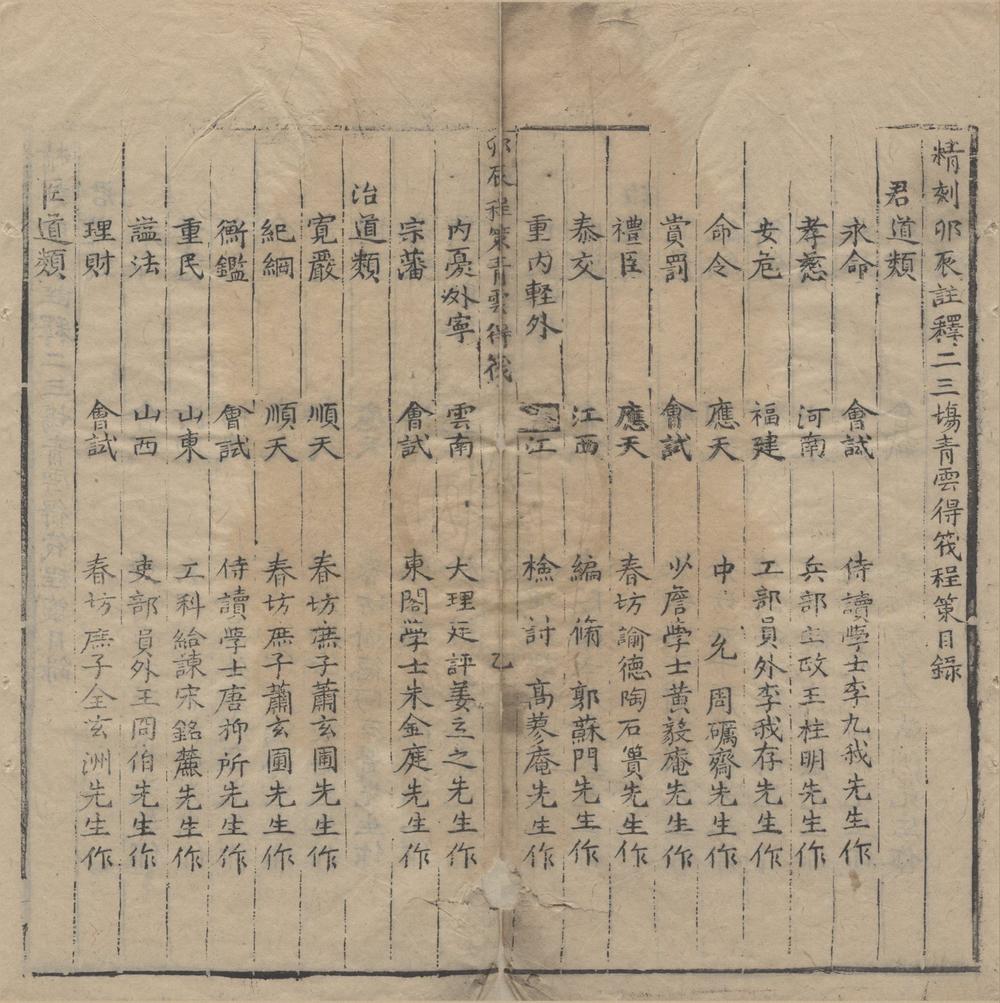 精刻卯辰註釋二三塲青雲得筏程策目錄
君道類
永命 會試 侍讀學士李九我先生作
孝慈 河南 兵部主政王柱明先生作
安危 福建 工部員外李我存先生作
命令 應天 中允周礪齋先生作
賞罰 會試 少詹學士黃毅庵先生作
禮臣 應天 春坊諭德陶石簣先生作
泰交 江西 編脩郭蘇門先生作
重內輕外 江 檢討高蓼庵先生作
卯辰程策青雲得筏 乙
內憂外寧 雲南 大理廷評姜立之先生作
宗藩 會試 東閣學士朱金庭先生作
治道類
寬嚴 順天 春坊庶子蕭玄圃先生作
紀綱 順天 春坊庶子蕭玄圃先生作
衡鑑 會試 侍讀學士唐抑所先生作
重民 山東 工科給諫宋銘麓先生作
謚法 山西 吏部員外王冏伯先生作
理財 會試 春坊庶子全玄洲先生作
臣道類